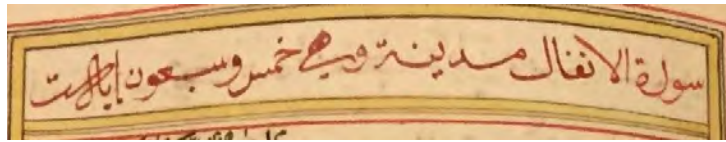 سورة الانفال مدينة وهي خمس وسبعون اياات